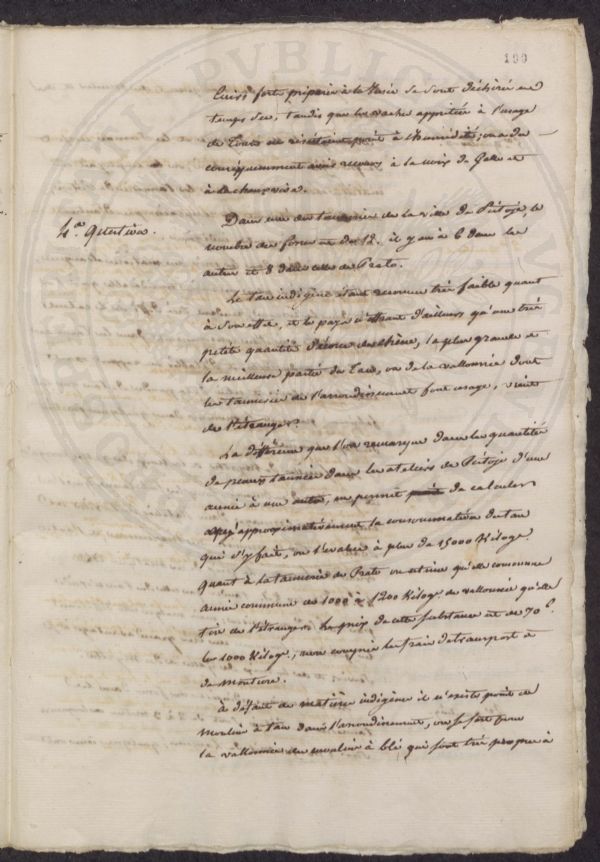 199
Cuirs forts préparés à la Husée se sont déchirés en
temps sec, tandis que les vaches apprêtées à l'usage
de Tours ne résistaient point à l'humidité; on a du
conséquemment avoir recours à la noix de Galle et
à la chaux vive.
4.e Question.
Dans une des tanneries de la ville de Pistoje, le
nombre des fosses est de 12. il y en a 6 dans les
autres et 8 dans celles de Prato.
Le tan indigène étant reconnu très faible quant
à son effet, et le pays n'offrant d'ailleurs qu'une très
petite quantité d'écorce de chêne, la plus grande et
la meilleure partie du Tan, ou de la vallonnée dont
les tanneries de l'arrondissement font usage, vient
de l'étranger.
La différence que l'on remarque dans la quantité
de peaux tannées dans les ateliers de Pistoje d'une
année à une autre, ne permet de calculer
approximativement la consommation de tan
qui s'y fait, on l'évalue à plus de 15000 Kilogs.
Quant à la tannerie de Prato on estime qu'elle consomme
année commune de 1000 à 1200 Kilogs de vallonnée qu'elle
tire de l'étranger. Le prix de cette substance est de 70 f.
les 1000 Kilogs, non compris les frais de transport et
de mouture.
à défaut de matière indigène il n'existe point de
moulin à tan dans l'arrondissement, on se sert pour
la vallonnée du moulin à blé qui sont très propres à